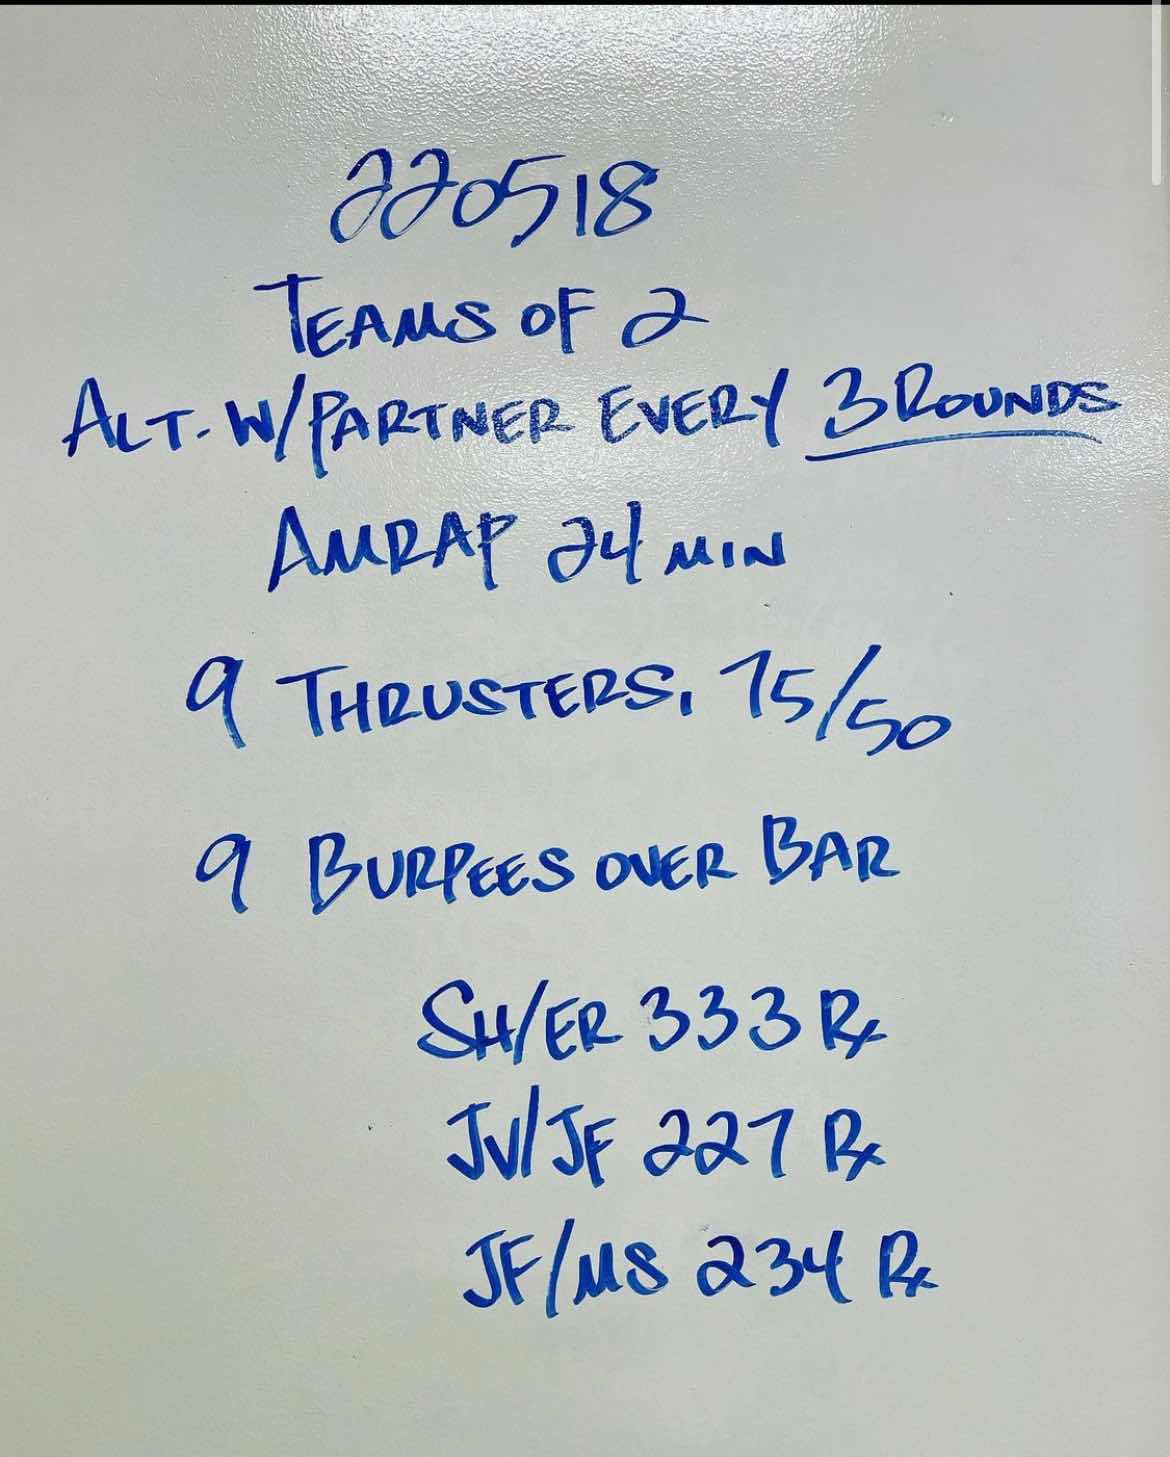 220518
TEAMS OF 2
ALT. W/PARTNER EVERY 3 ROUNDS
AMRAP 24 MIN
9 THRUSTERS, 75/50
9 BURPEES OVER BAR
SH/ER 333 Rx
JV/JF 227 Rx
JF/MS 234 Rx